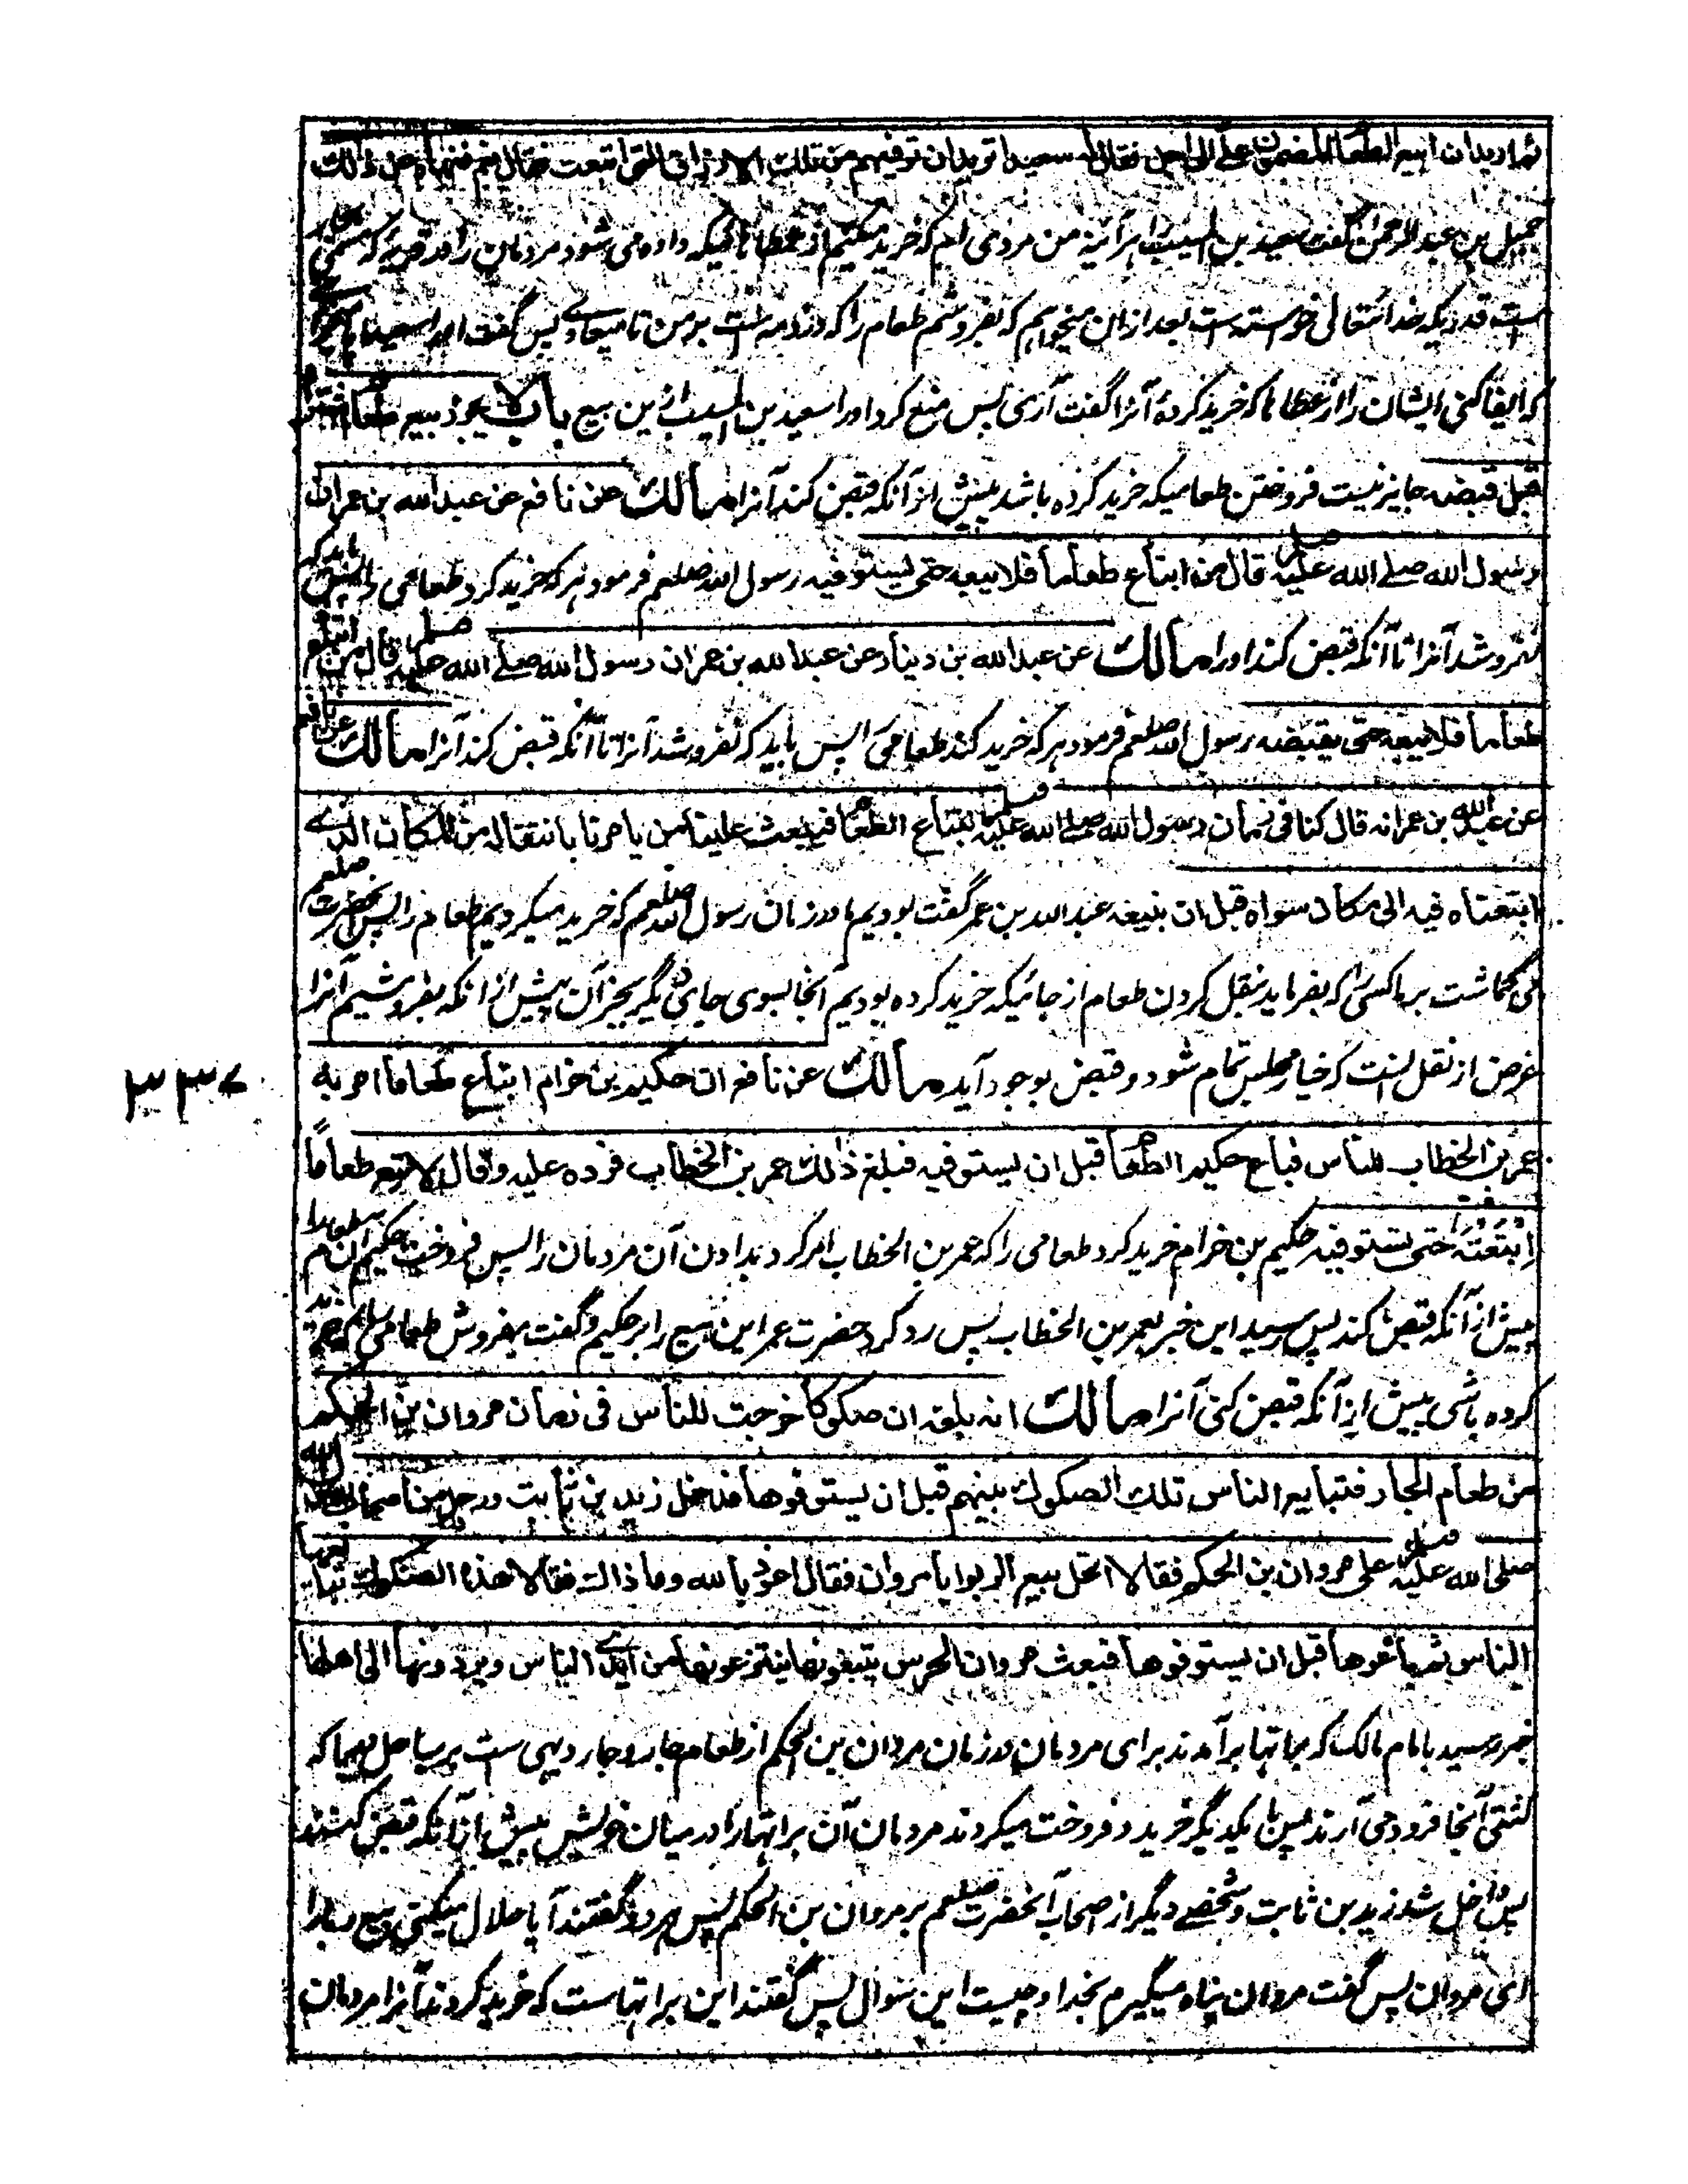 ثم اريد ان ابيع الطعام المضمون علي الى اجل فقال له سعيد اتريد ان توفيهم من تلك الارزاق التى ابتعت فقال نعم فنهاه عن ذلك
جميل بن عبدالرحمن گفت سعيد بن المسيب را هر آئينه من مردى ام كه خريد ميكنم از عطاها كه داده مى شود مردمان را در قريه كه مسمى بجار
است قدريكه خدا تعالى خواسته است بعد ازان ميخواهم كه بفروشم طعام را كه در ذمه است بر من تا ميعادے پس گفت اورا سعيد آيا ميخواهى
كه ايفا كنى ايشان را از عطاها كه خريد كرده آنرا گفت آرى پس منع كرد اورا سعيد بن المسيب ازين بيع باب لا يجوز بيع طعام اشتراه
قبل قبضه جايز نيست فروختن طعاميكه خريد كرده باشد پيش از آنكه قبض كند آنرا مالك عن نافع عن عبدالله بن عمر ان
رسول الله صلے الله عليه وسلم قال من ابتاع طعاما فلا يبعه حتى يستوفيه رسول الله صلعم فرمود هر كه خريد كرد طعامى را پس بايد كه
نفروشد آنرا تا آنكه قبض كند اورا مالك عن عبدالله بن دينار عن عبدالله بن عمر ان رسول الله صلے الله عليه وسلم قال من ابتاع
طعاما فلا يبعه حتى يقبضه رسول الله صلعم فرمود هر كه خريد كند طعامى را پس بايد كه نفروشد آنرا تا آنكه قبض كند آنرا مالك عن نافع
عن عبدالله بن عمر انه قال كنا فى زمان رسول الله صلے الله عليه وسلم نبتاع الطعام فيبعث علينا من يامرنا بانتقاله من المكان الذے
ابتعناه فيه الى مكان سواه قبل ان نبيعه عبدالله بن عمر گفت بوديم ما در زمان رسول الله صلعم كه خريد ميكرديم طعام را پس آنحضرت صلعم
مى گماشت بر ما كسى را كه بفرمايد بنقل كردن طعام از جائيكه خريد كرده بوديم آنجا بسوى جاى ديگر بجز آن پيش از آنكه بفروشيم آنرا
غرض از نقل اينست كه خيار مجلس تمام شود و قبض بوجود آيد مالك عن نافع ان حكيم بن حزام ابتاع طعاما امر به
عمر بن الخطاب للناس فباع حكيم الطعام قبل ان يستوفيه فبلغ ذلك عمر بن الخطاب فرده عليه وقال لا تبع طعاماً
ابتعته حتى تستوفيه حكيم بن حزام خريد كرد طعامى را كه عمر بن الخطاب امر كرد بدادن آن مردمان را پس فروخت حكيم آن طعام را
پيش از آنكه قبض كند پس رسيد اين خبر بعمر بن الخطاب پس رد كرد حضرت عمر اين بيع را بر حكيم و گفت مفروش طعامى را كه خريد
كرده باشى پيش از آنكه قبض كنى آنرا مالك انه بلغه ان صكوكا خرجت للناس فى زمان مروان بن الحكم
من طعام الجار فتبايع الناس تلك الصكوك بينهم قبل ان يستوفوها فدخل زيد بن ثابت ورجل من اصحاب رسول الله
صلى الله عليه وسلم على مروان بن الحكم فقالا اتحل بيع الربوا يا مروان فقال اعوذ بالله وما ذاك فقالا هذه الصكوك تبايعها
الناس ثم باعوها قبل ان يستوفوها فبعث مروان الحرس يتبعونها ينتزعونها من ايدے الناس ويردونها الى اهلها
خبر رسيد بامام مالك كه براتها برآمدند براى مردمان در زمان مروان بن الحكم از طعام جار و جار ديهى ست بر ساحل دريا كه
كشتى آنجا فرود مى آرند پس با يكديگر خريد و فروخت ميكردند مردمان آن براتها را در ميان خويش پيش از آنكه قبض كنند
پس داخل شد زيد بن ثابت و شخصے ديگر از اصحاب آنحضرت صلعم بر مروان بن الحكم پس هر دو گفتند آيا حلال ميكنى بيع ربا را
اى مروان پس گفت مروان پناه ميگيرم بخدا و چيست اين سوال پس گفتند اين براتهاست كه خريد كردند آنرا مردمان
٣٣٧